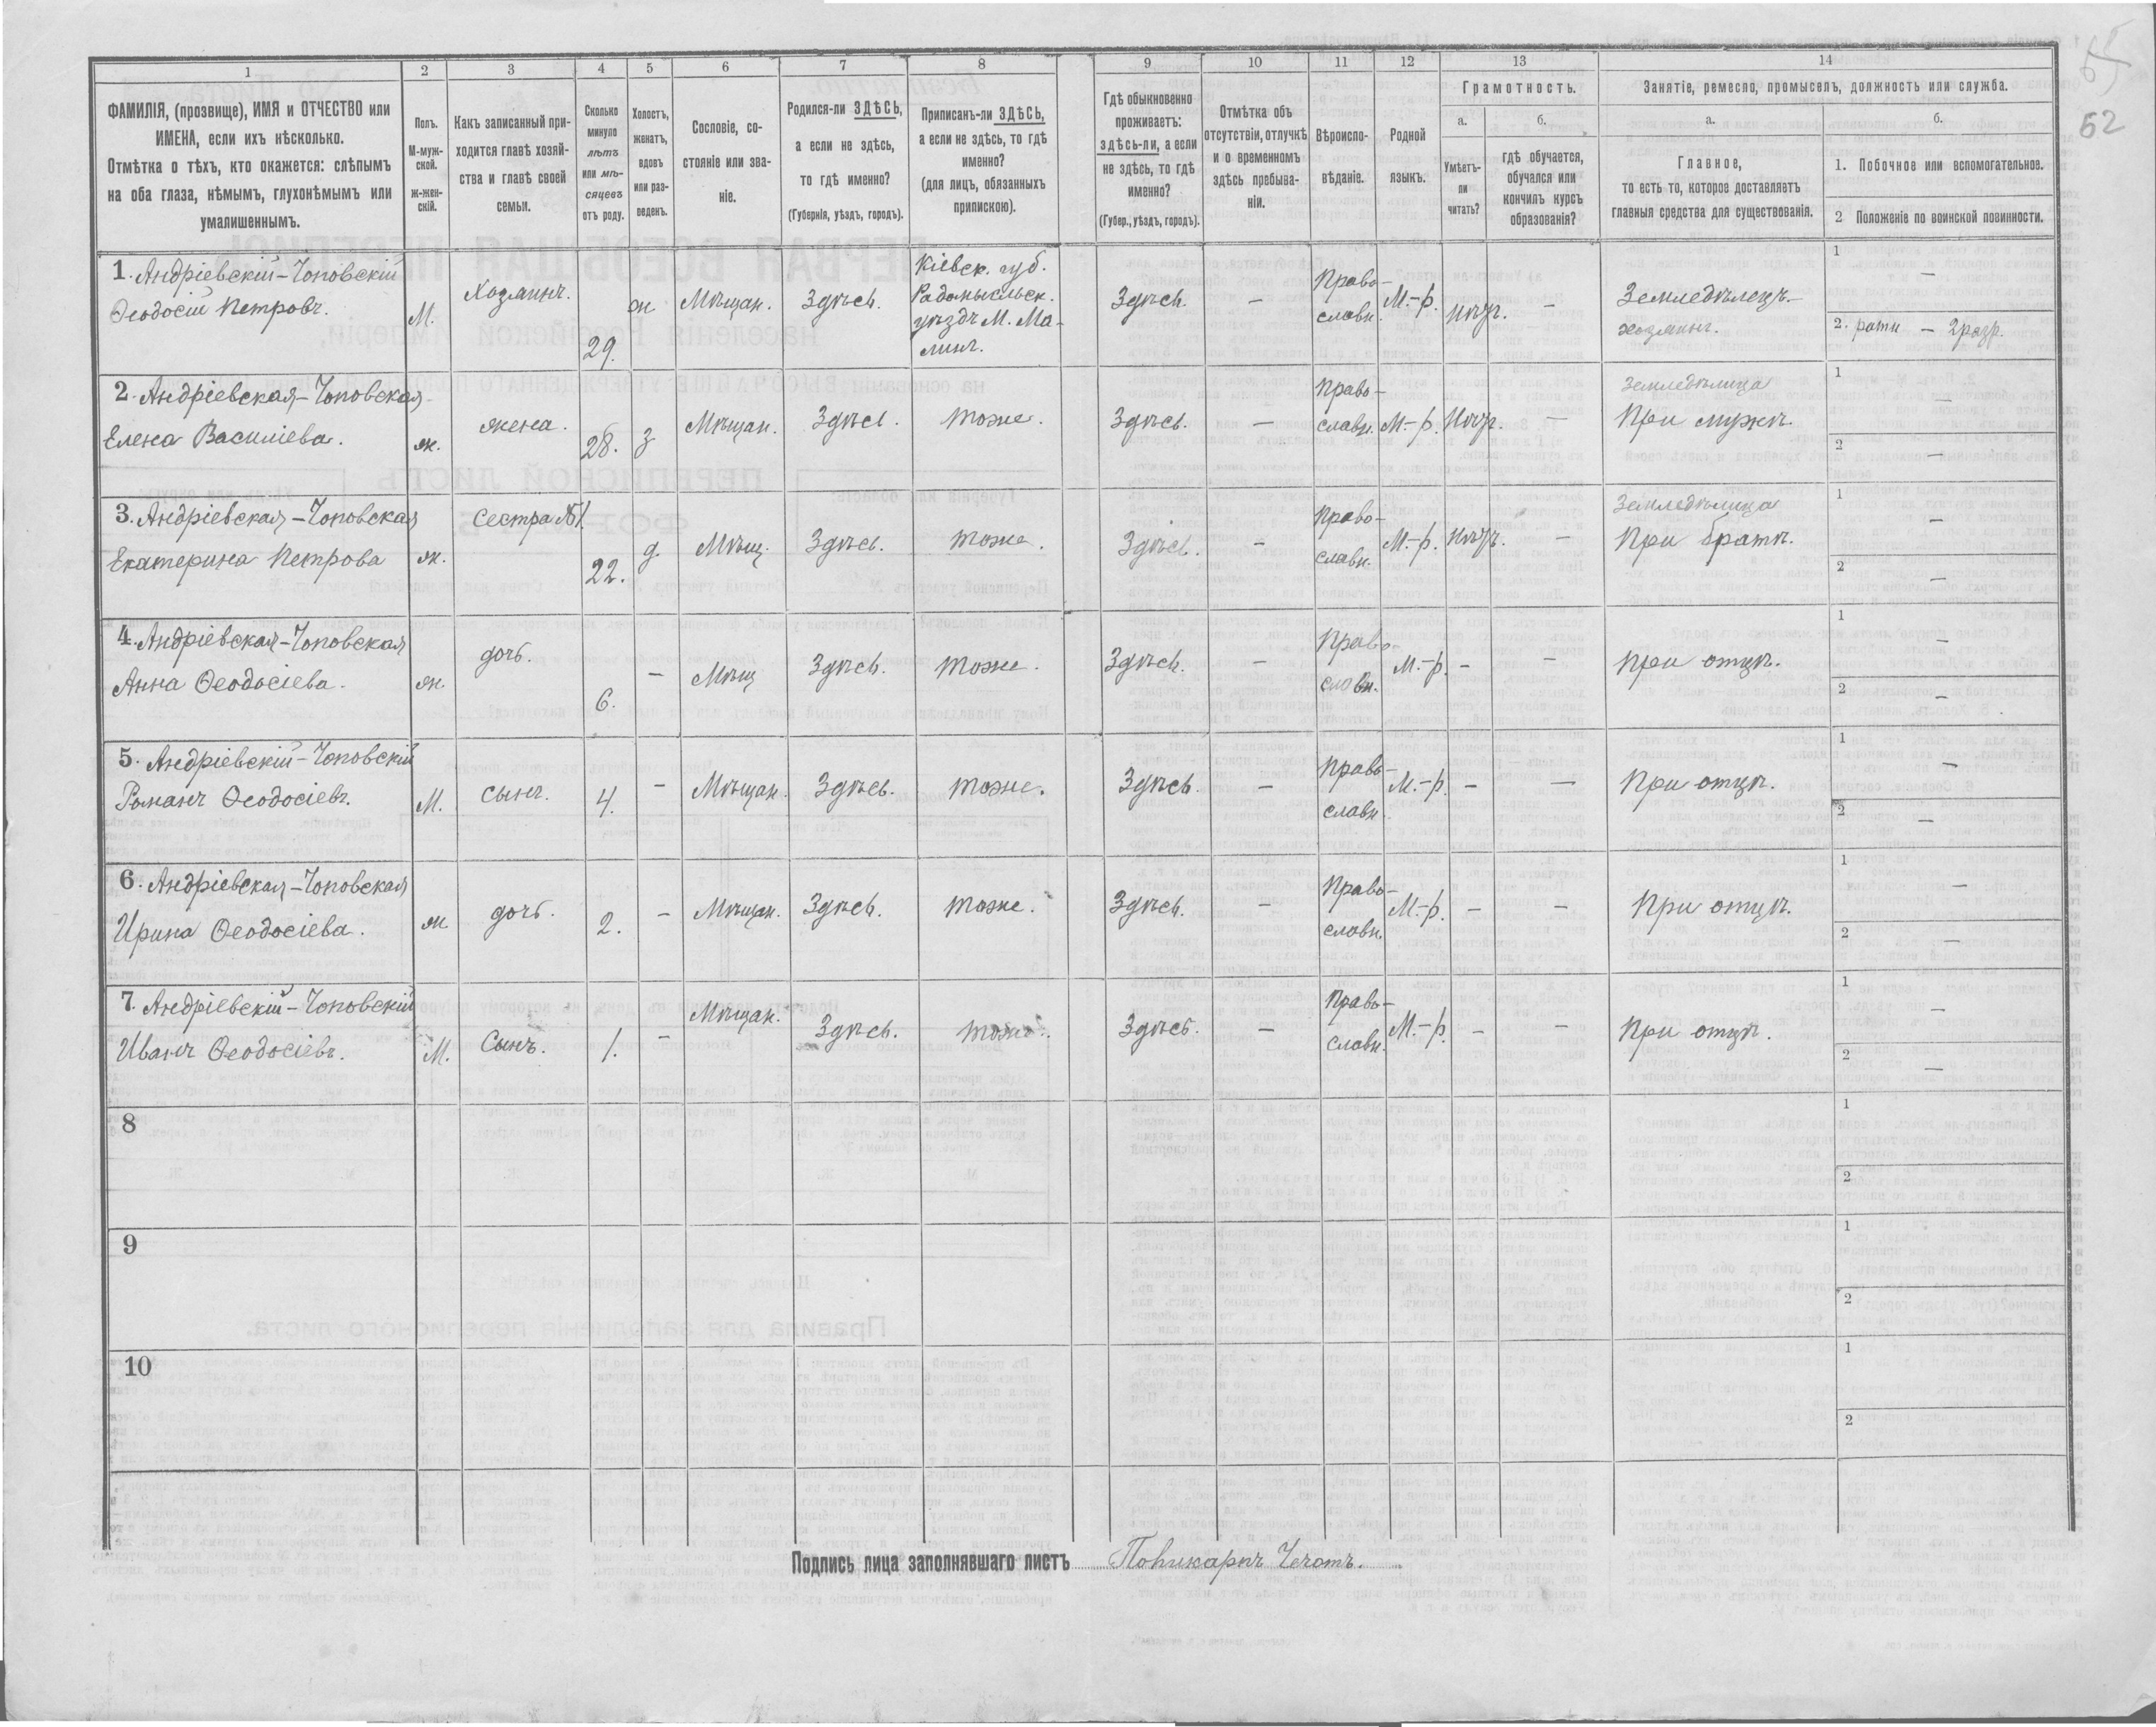 65
62
1
2
3
4
5
6
7
8
9
10
11
12
13
14
ФАМИЛІЯ, (прозвище), ИМЯ и ОТЧЕСТВО или
ИМЕНА, если ихъ нѣсколько.
Отмѣтка о тѣхъ, кто окажется: слѣпымъ
на оба глаза, нѣмымъ, глухонѣмымъ или
умалишеннымъ.
Полъ.
М-муж-
ской.
ж-жен-
скій.
Какъ записанный при-
ходится главѣ хозяй-
ства и главѣ своей
семьи.
Сколько
минуло
лѣтъ
или мѣ-
сяцевъ
отъ роду.
Холостъ,
женатъ,
вдовъ
или раз-
веденъ.
Сословіе, со-
стояніе или зва-
ніе.
Родился-ли ЗДѢСЬ,
а если не здѣсь,
то гдѣ именно?
(Губернія, уѣздъ, городъ).
Приписанъ-ли ЗДѢСЬ,
а если не здѣсь, то гдѣ
именно?
(для лицъ, обязанныхъ
припискою).
Гдѣ обыкновенно
проживаетъ:
здѣсь-ли, а если
не здѣсь, то гдѣ
именно?
(Губер., уѣздъ, городъ).
Отмѣтка объ
отсутствіи, отлучкѣ
и о временномъ
здѣсь пребыва-
ніи.
Вѣроиспо-
вѣданіе.
Родной
языкъ.
Грамотность.
а.
Умѣетъ-
ли
читать?
б.
гдѣ обучается,
обучался или
кончилъ курсъ
образованія?
Занятіе, ремесло, промыселъ, должность или служба.
а.
Главное,
то есть то, которое доставляетъ
главныя средства для существованія.
б.
1. Побочное или вспомогательное.
2 Положеніе по воинской повинности.
1. Андріевскій-Чоповскій
Ѳеодосій Петровъ.
М.
Хозяинъ.
29.
ж.
Мѣщан.
Здѣсь.
Кіевск. губ.
Радомысльск.
уѣздъ М. Ма-
линъ.
Здѣсь
—
Право-
славн.
М.-р.
негр.
—
Земледѣлецъ-
хозяинъ.
1
—
2. ратн — 2 разр.
2. Андріевская-Чоповская
Елена Василіева.
ж.
жена.
28.
з
Мѣщан.
Здѣсь.
тоже.
Здѣсь.
—
Право-
славн.
М.-р.
негр.
—
Земледѣлица
При мужѣ.
1
—
2
—
3. Андріевская-Чоповская
Екатерина Петрова
ж.
Сестра №1.
22.
д.
Мѣщ.
Здѣсь.
тоже.
Здѣсь.
—
Право-
славн.
М.-р.
негр.
—
Земледѣлица
При братѣ.
1
—
2
—
4. Андріевская-Чоповская
Анна Ѳеодосіева.
ж.
дочь.
6.
—
Мѣщ
Здѣсь.
тоже.
Здѣсь.
—
Право-
славн.
М.-р.
—
—
при отцѣ.
1
—
2
—
5. Андріевскій-Чоповскій
Романъ Ѳеодосіевъ.
М.
сынъ.
4.
—
Мѣщан.
Здѣсь.
тоже.
Здѣсь
—
Право-
славн.
М.-р.
—
—
При отцѣ.
1
—
2
—
6. Андріевская-Чоповская
Ирина Ѳеодосіева.
ж.
дочь.
2.
—
Мѣщан.
Здѣсь.
тоже.
Здѣсь.
—
Право-
славн.
М.-р.
—
—
При отцѣ.
1
—
2
—
7. Андріевскій-Чоповскій
Иванъ Ѳеодосіевъ.
М.
Сынъ.
1.
—
Мѣщан.
Здѣсь.
тоже.
Здѣсь.
—
Право-
славн.
М.-р.
—
—
При отцѣ.
1
—
2
—
8
1
2
9
1
2
10
1
2
Подпись лица заполнявшаго листъ Поликарпъ Чечотъ.